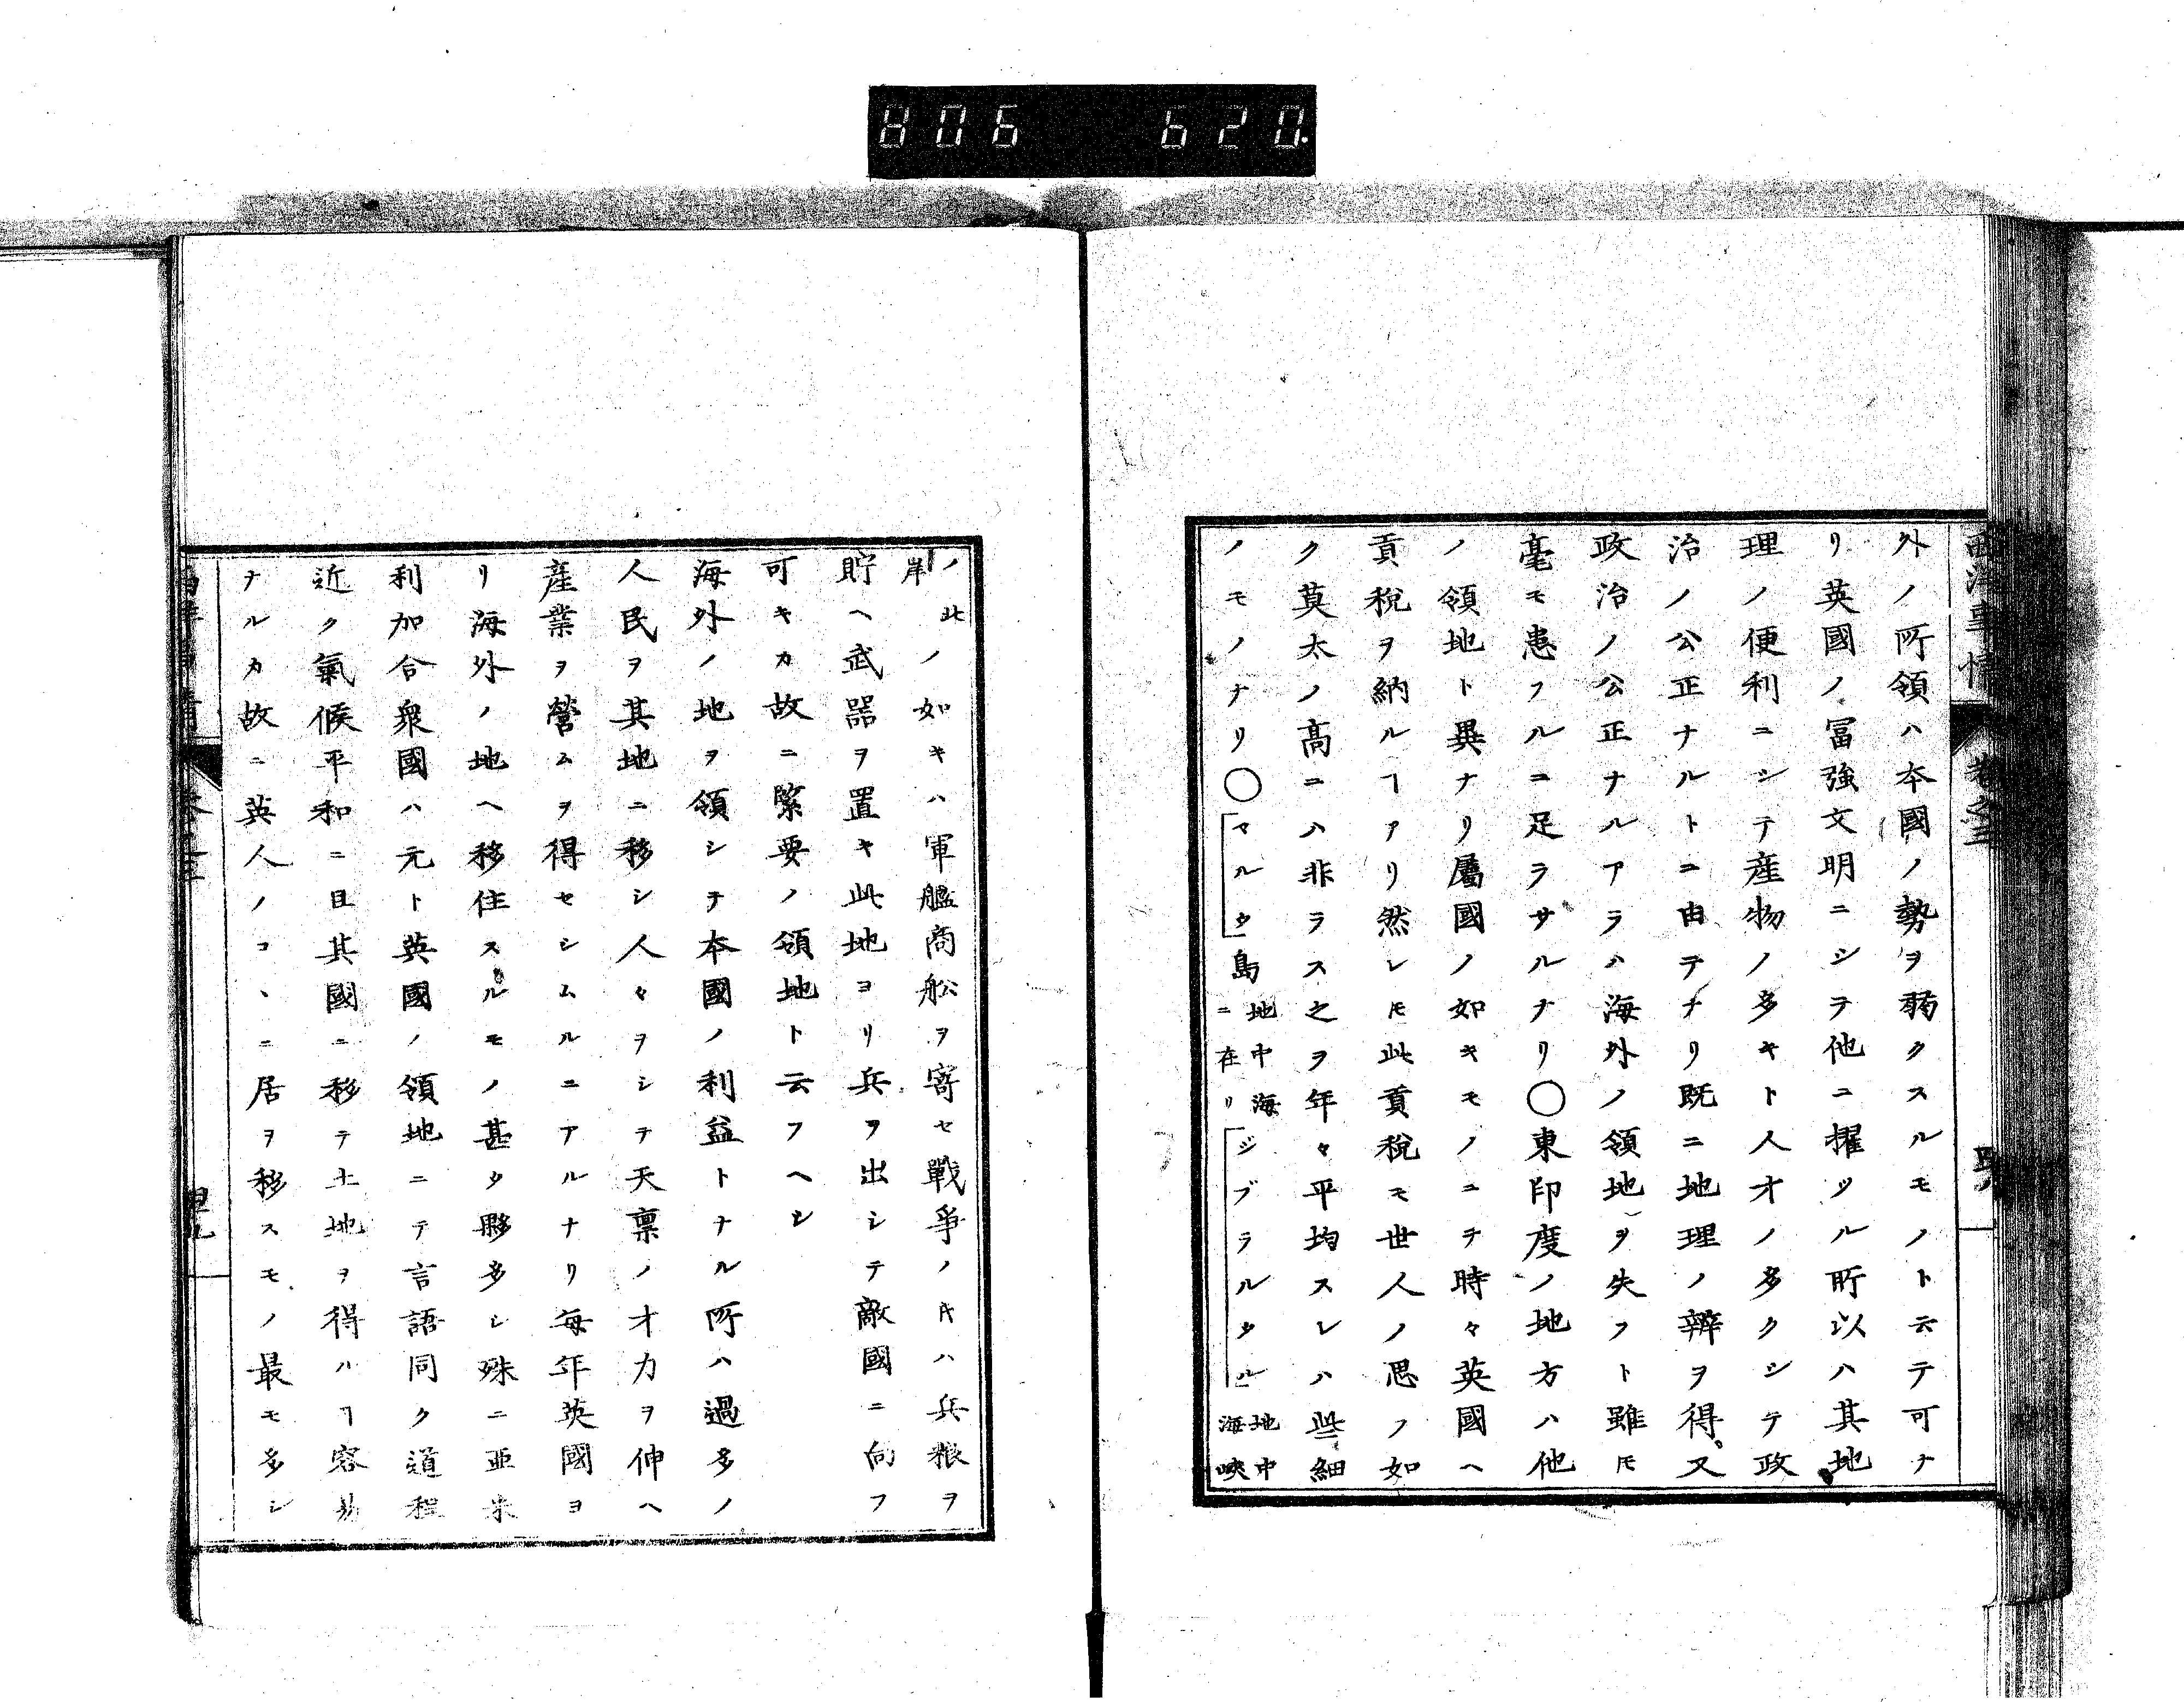 806 620.
西洋事情 卷之三
外ノ所領ハ本國ノ勢ヲ弱クスルモノト云テ可ナ
リ英國ノ冨強文明ニシテ他ニ擢ツル所以ハ其地
理ノ便利ニシテ産物ノ多キト人才ノ多クシテ政
治ノ公正ナルトニ由テナリ既ニ地理ノ辨ヲ得又
政治ノ公正ナルアラハ海外ノ領地ヲ失フト雖𪜈
毫モ患フルニ足ラサルナリ○東印度ノ地方ハ他
ノ領地ト異ナリ屬國ノ如キモノニテ時々英國ヘ
貢税ヲ納ルヿアリ然レ𪜈此貢税モ世人ノ思ノ如
ク莫太ノ高ニハ非ラス之ヲ年々平均スレハ些細
ノモノナリ○マルタ島地中海ニ在リジブラルタル地中海峽
ノ岸此ノ如キハ軍艦商舩ヲ寄セ戰爭ノ𪜈ハ兵粮ヲ
貯ヘ武器ヲ置キ此地ヨリ兵ヲ出シテ敵國ニ向フ
可キカ故ニ緊要ノ領地ト云フヘシ
海外ノ地ヲ領シテ本國ノ利益トナル所ハ過多ノ
人民ヲ其地ニ移シ人々ヲシテ天禀ノオ力ヲ伸ヘ
産業ヲ營ムヲ得セシムルニアルナリ毎年英國ヨ
リ海外ノ地ヘ移住スルモノ甚タ夥多シ殊ニ亜米
利加合衆國ハ元ト英國ノ領地ニテ言語同ク道程
近ク氣候平和ニ且其國ニ移テ土地ヲ得ハヿ容易
ナルカ故ニ英人ノコヽニ居ヲ移スモノ最モ多シ